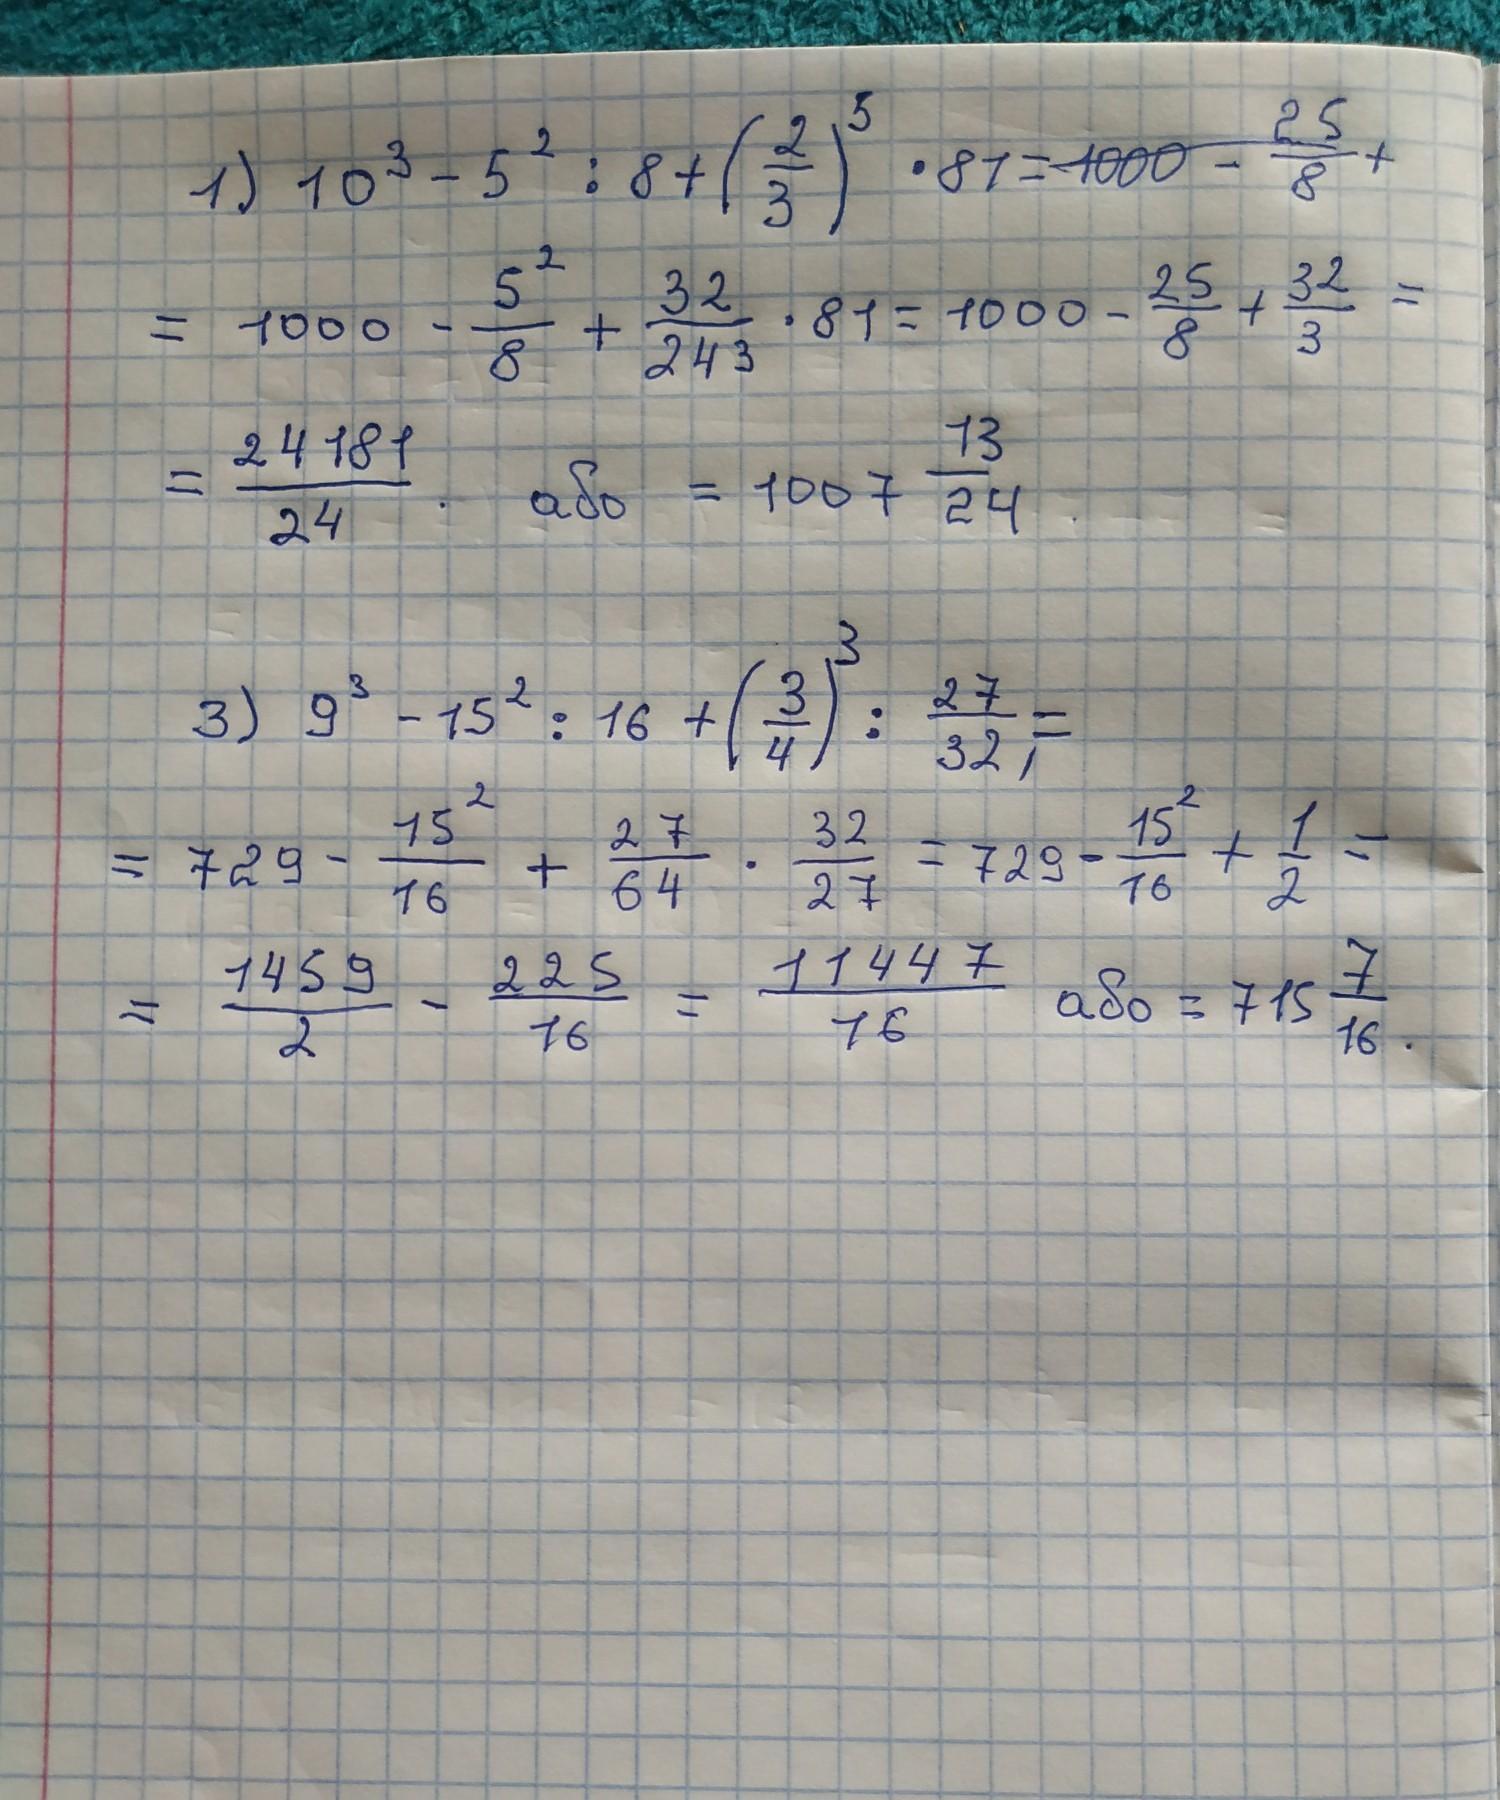 1) 10³ - 5² : 8 + (2/3)⁵ · 81 = 1000 - 25/8 +
= 1000 - 5²/8 + 32/243 · 81 = 1000 - 25/8 + 32/3 =
= 24181/24. або = 1007 13/24.
3) 9³ - 15² : 16 + (3/4)³ : 27/32, =
= 729 - 15²/16 + 27/64 · 32/27 = 729 - 15²/16 + 1/2 =
= 1459/2 - 225/16 = 11447/16 або = 715 7/16.